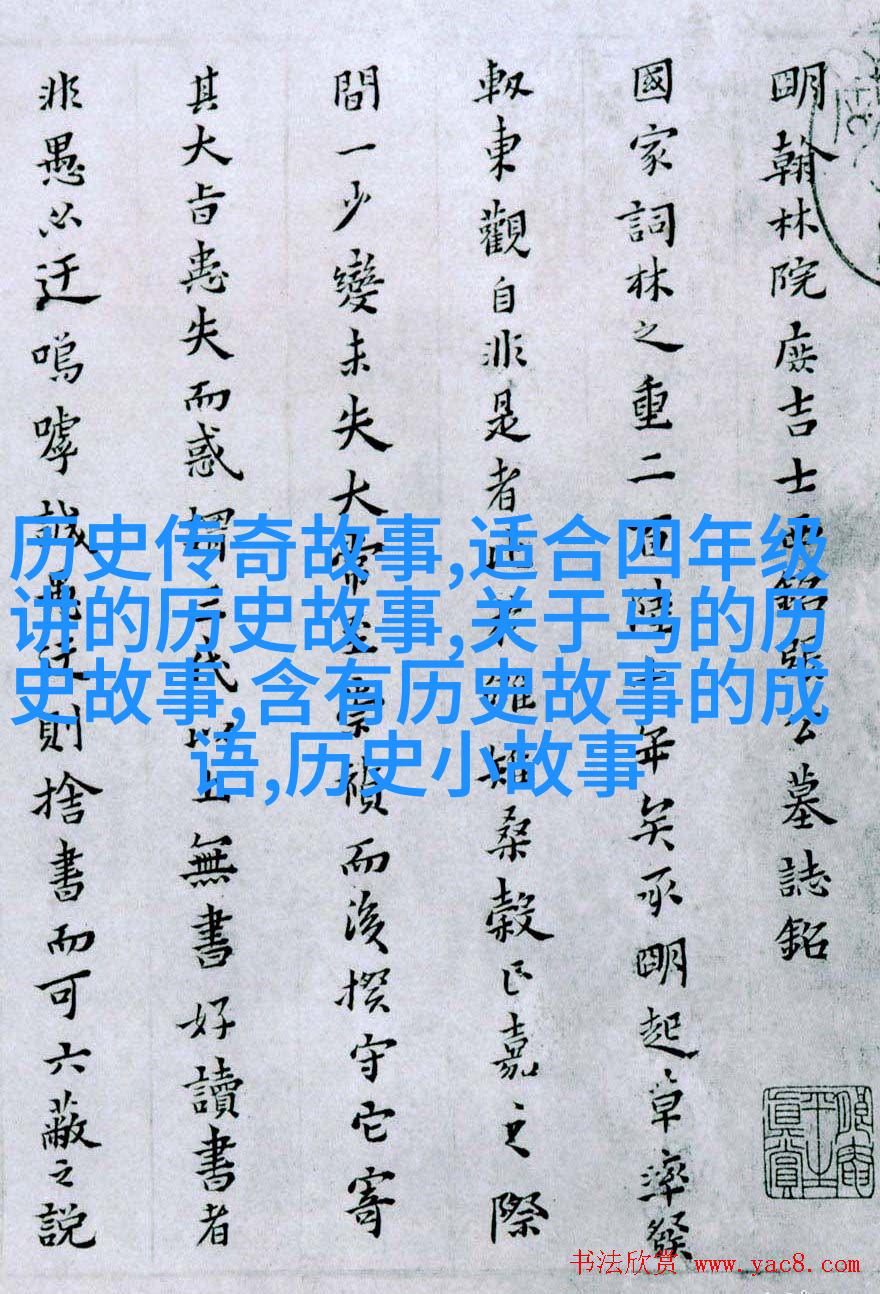 明翰林院庶吉士西銘張公墓誌銘
國家詞林之重二百陸十年矣承明起草率發
軔東觀自非是者
桑穀它嘉之際
間一少變未失大常至崇禎而後揆守它寄
其大旨患失而惑溺三代以上無書好讀書者
非愚必迂嗚嘑誠愚迂則捨書而可六蔽之説
历史传奇故事,适合四年级
讲的历史故事,关于马的历
史故事,含有历史故事的成
语,历史小故事
书法欣赏 www.yac8.com